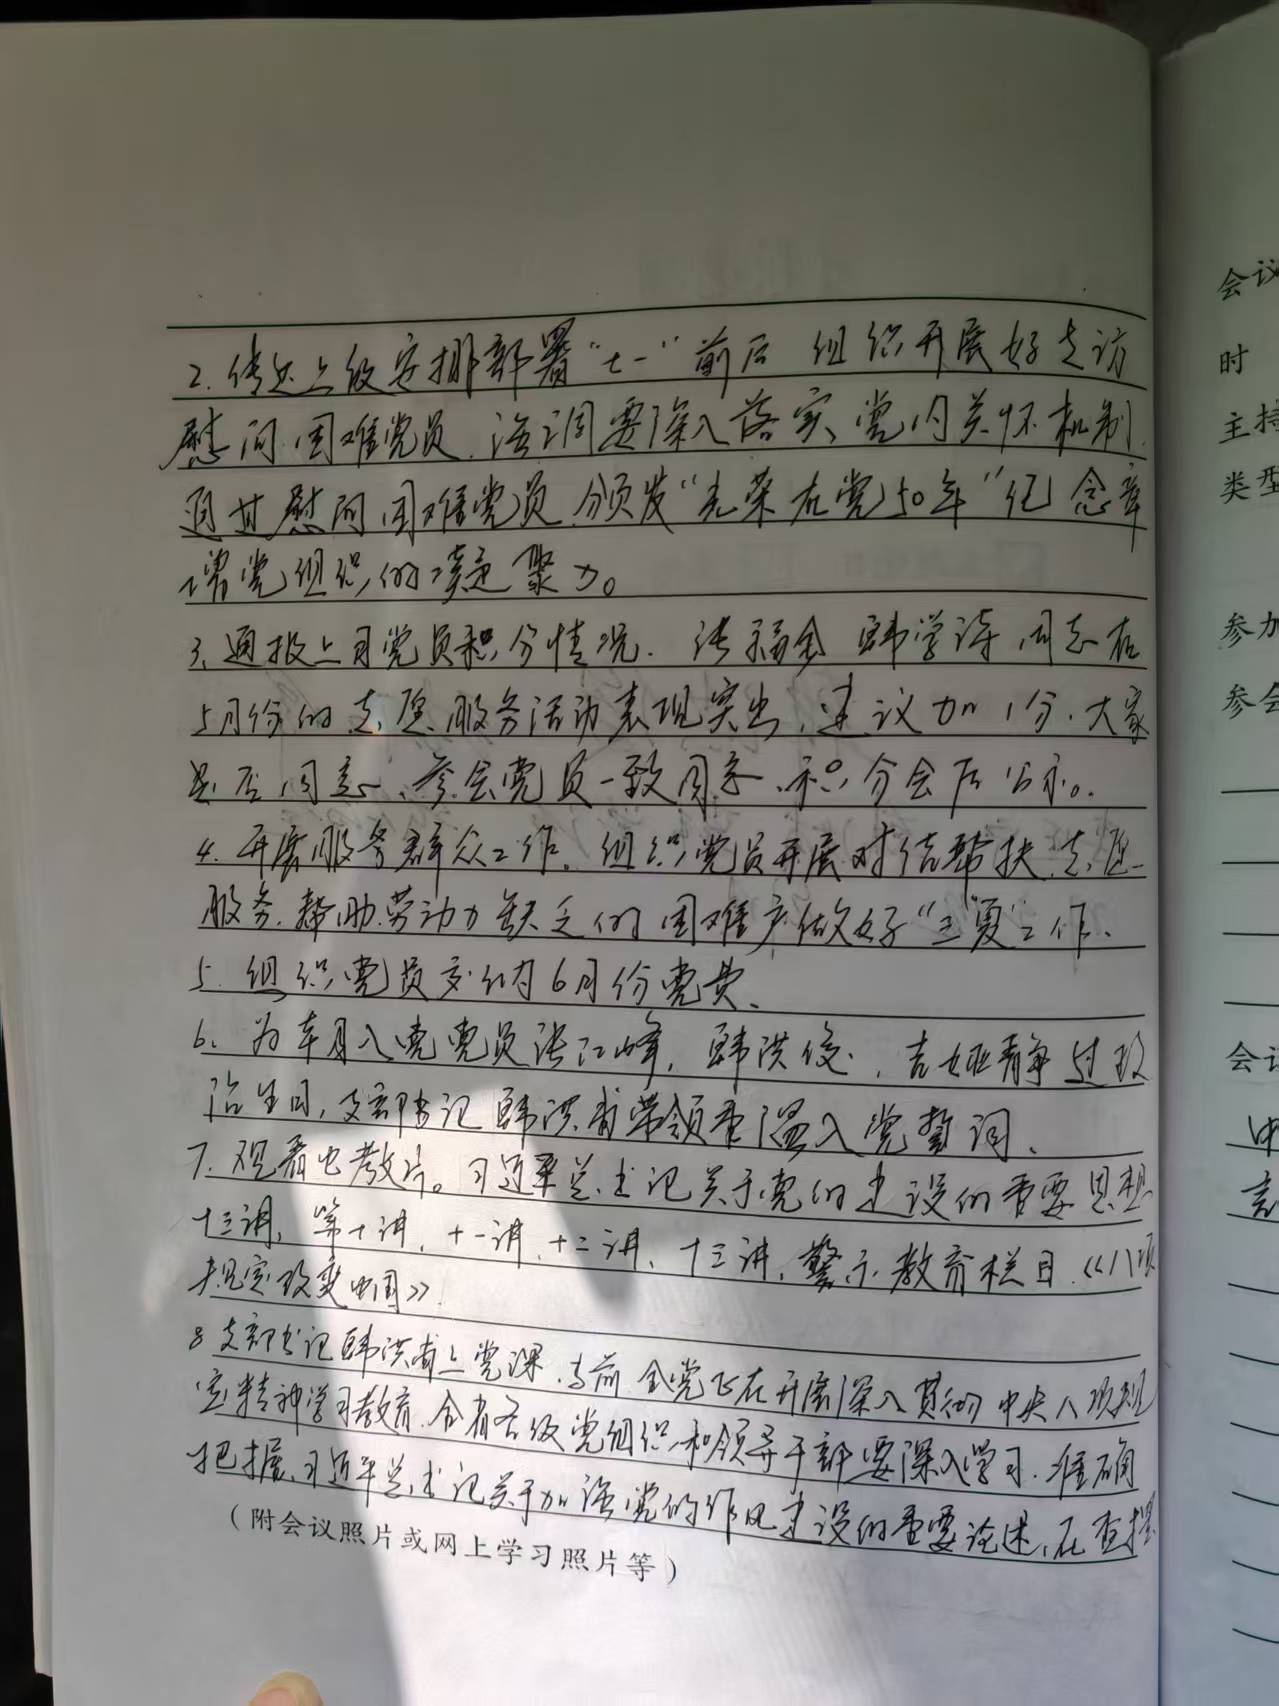 2.传达上级安排部署“七一”前后 组织开展好走访
慰问困难党员.强调要深入落实党内关怀机制.
通过慰问困难党员.颁发“光荣在党50年”纪念章
增党组织的凝聚力。
3.通报上月党员积分情况. 张福金 韩学诗 同志在
5月份的志愿服务活动表现突出,建议加1分.大家
是否同意、参会党员一致同意.积分会后公示。
4.开展服务群众工作。组织党员开展对结帮扶志愿
服务.帮助劳动力缺乏的困难户做好“三夏”工作、
5.组织党员交纳6月份党费、
6、为本月入党党员张江峰,韩洪俊,吉娅静过政
治生日,支部书记韩洪甫带领重温入党誓词、
7.观看电教片。习近平总书记关于党的建设的重要思想
十三讲,第十讲,十一讲,十二讲、十三讲,警示教育栏目.《八项
规定改变中国》
8支部书记韩洪甫上党课.当前 全党正在开展深入贯彻中央八项规
定精神学习教育.全省各级党组织和领导干部要深入学习.准确
把握习近平总书记关于加强党的作风建设的重要论述,在查摆
(附会议照片或网上学习照片等)
会议
时
主持
类型
参加
参会
会议